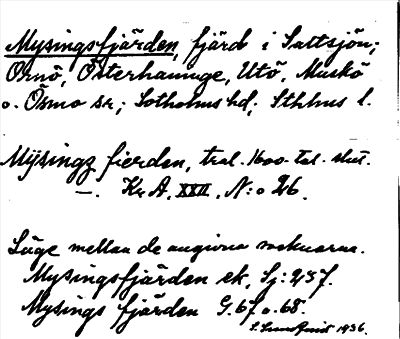 Mysingsfjärden, fjärd i Saltsjön;
Ornö, Österhaninge, Utö, Muskö
o. Ösmo sr; Sotholms hd; Sthlms l.
Mÿsingz fierden, trol. 1600-tal. slut.
—. Kr A. XXII, N:o 26.
Läge mellan de angivna socknarna.
Mysingsfjärden ek, Sj: 237.
Mysings fjärden G. 67 o. 68.
1936.